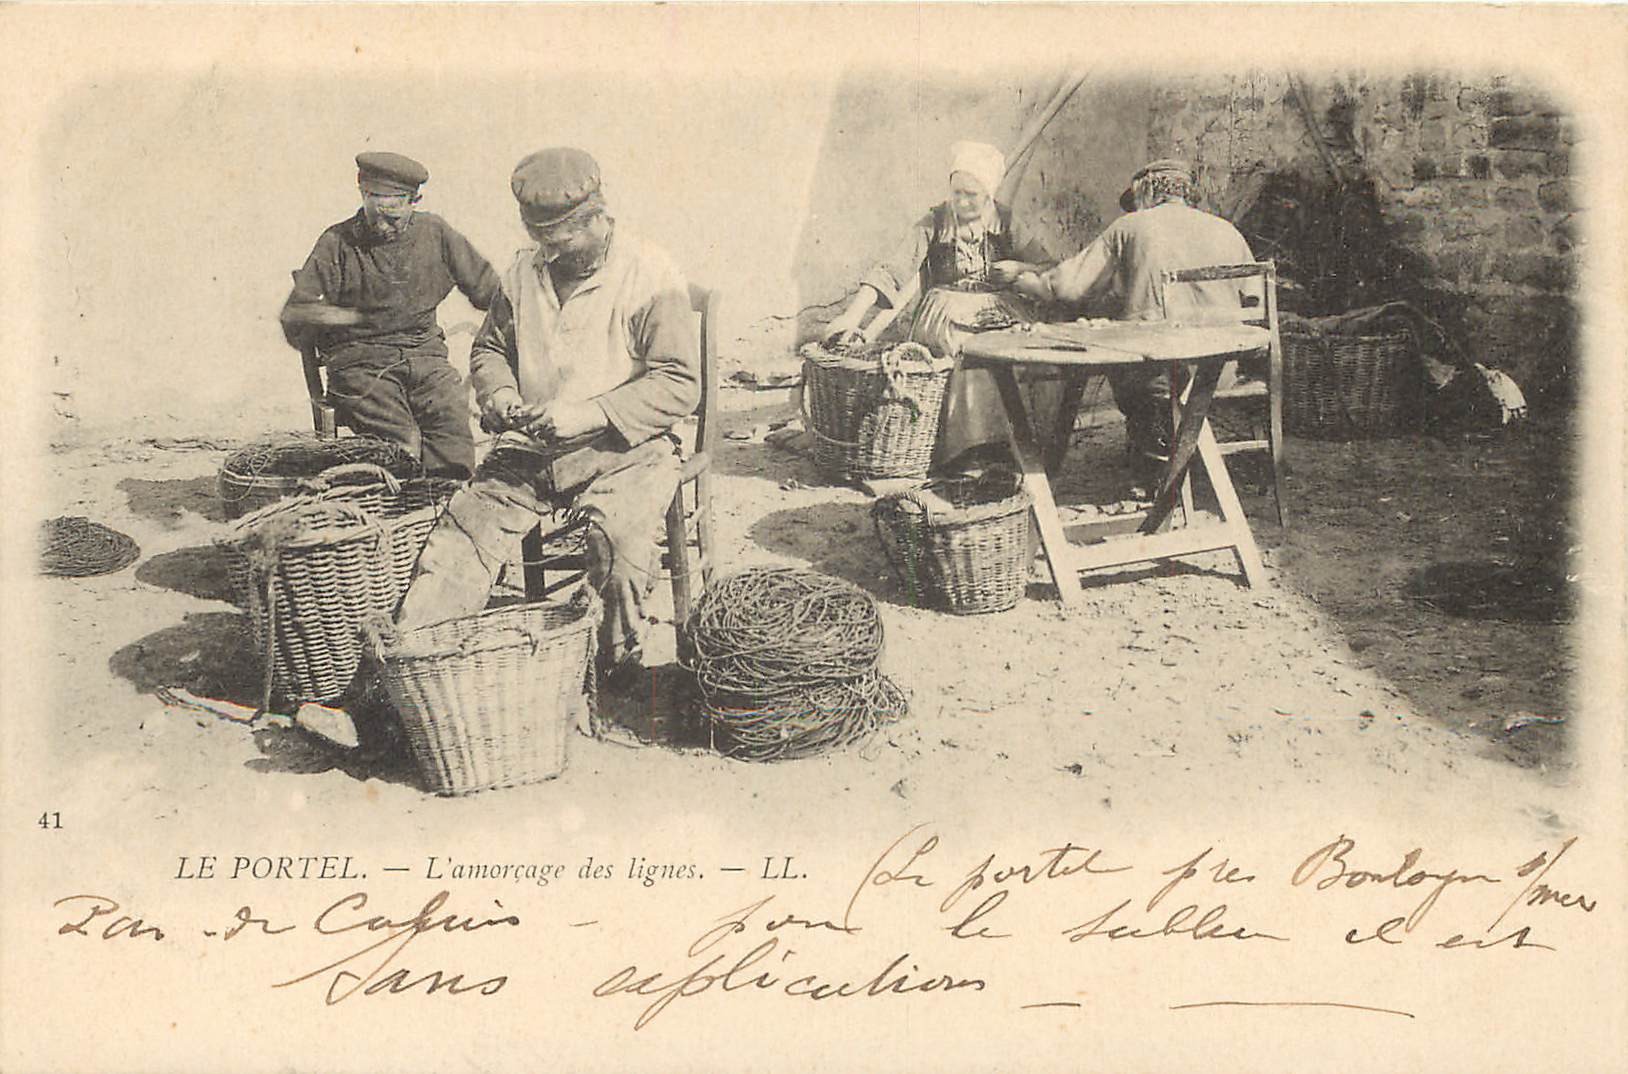 41
LE PORTEL. — L'amorçage des lignes. — LL.
(Le portel pres Boulogne s/mer
Pas-de Calais - pour le tableau il est
sans explications —